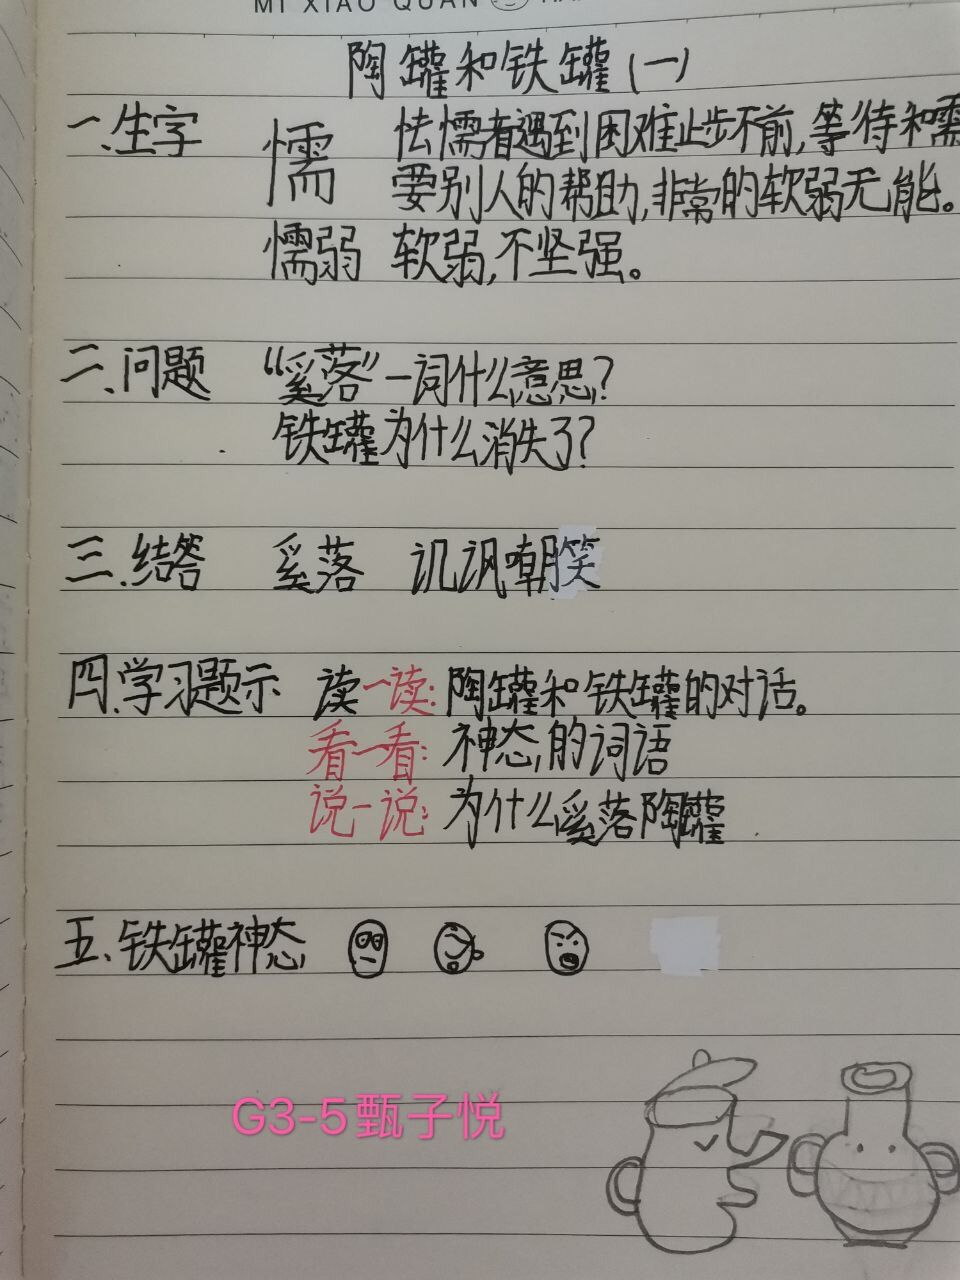 MI XIAO QUAN
陶罐和铁罐(一)
一.生字 懦 怯懦者遇到困难止步不前,等待和需
要别人的帮助,非常的软弱无能。
懦弱 软弱,不坚强。
二.问题 “奚落”一词什么意思?
铁罐为什么消失了?
三.结答 奚落 讥讽嘲笑
四.学习题示 读一读:陶罐和铁罐的对话。
看一看:神态的词语
说一说:为什么奚落陶罐
五.铁罐神态
G3-5甄子悦